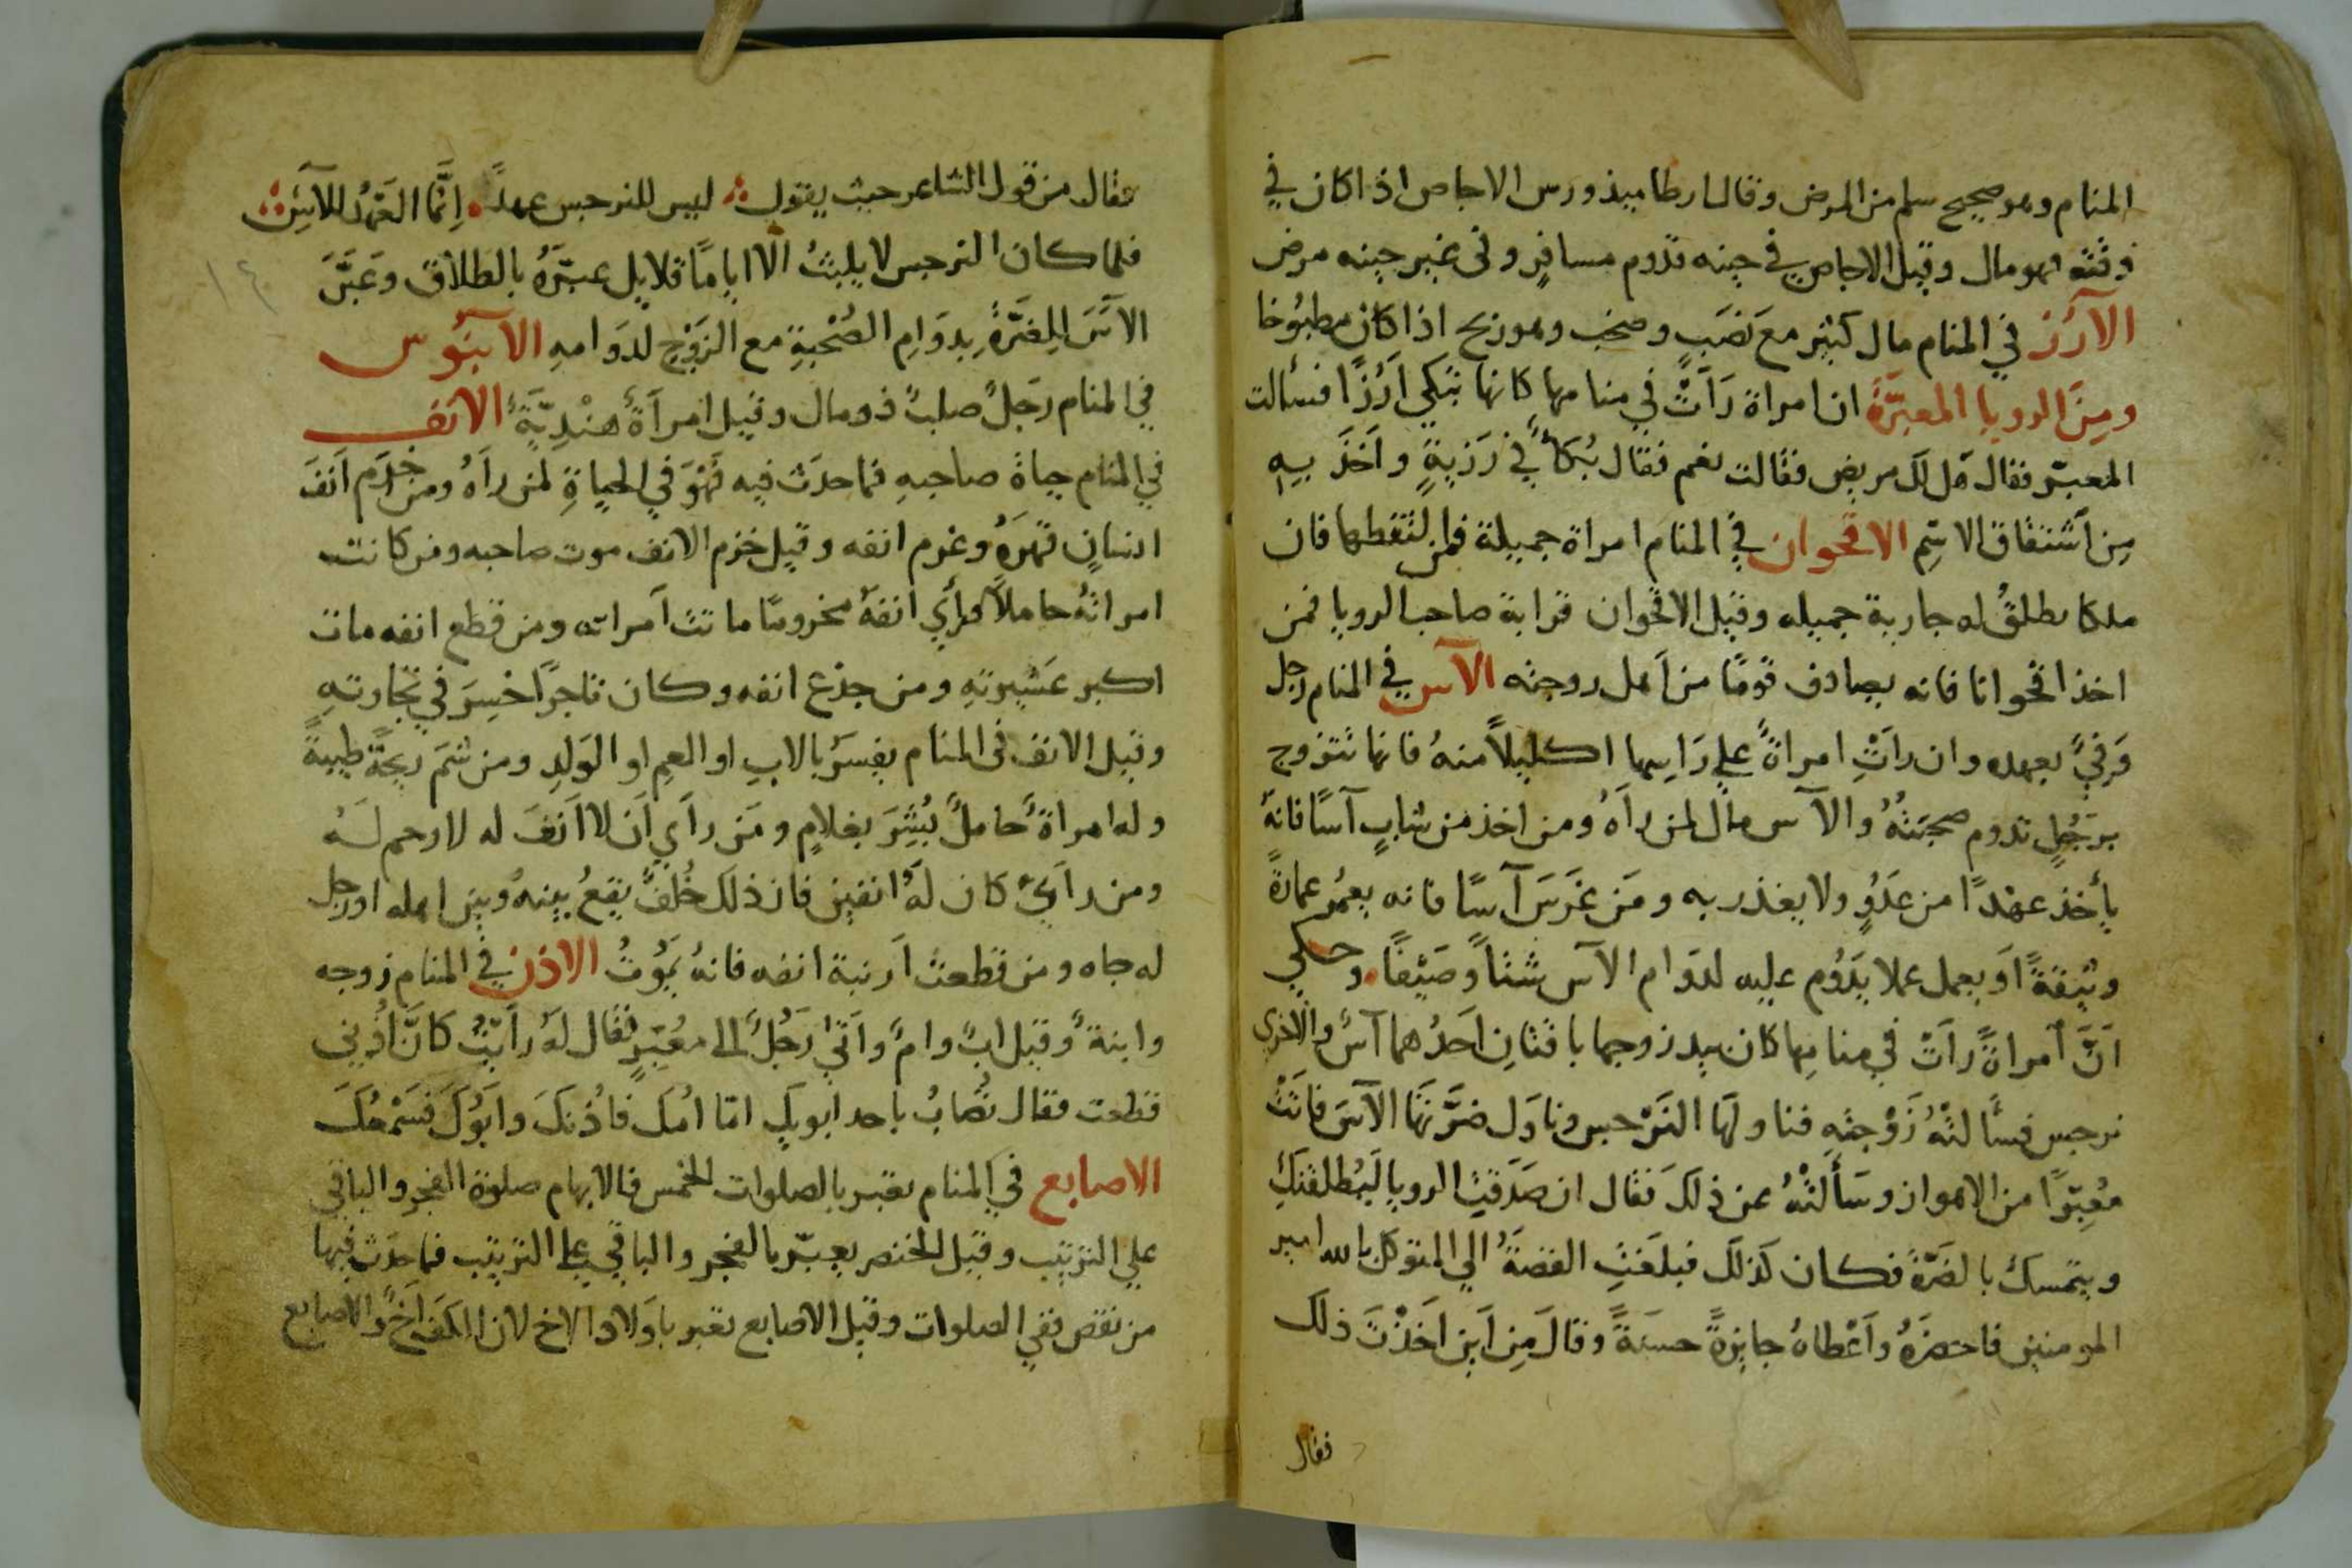 المنام وهو صحيح سلم من المرض وقال ارطاميذورس الاجاص اذا كان في
وقته فهو مال وقيل الاجاص في حينه قدوم مسافرٍ وفى غير حينه مرض
الأرز في المنام مال كثير مع نصَبٍ وصخب وهو ربح اذا كان مطبُوخا
ومِنَ الرويا المعبّرَةُ ان امراة رَأَتْ في منامها كانها تبكي اَرُزًا فسألت
المعبّر فقال هَل لك مريض فقالت نعم فقال بُكَأٌ في رَزيةٍ واَخَذَ بيهِ
مِن اَشتقاق الاسْمِ الاقحوان في المنام امراة جميلة فمن التقطها فان
ملكا يطلقُ له جارية جميله وقيل الاقحوان قرابة صاحب الرويا فمن
اخذ اقحوانا فانه يصادف قومًا من اَهل زوجته الآس في المنام رجل
وَفيٌّ بعهده وان رأَتْ امراةٌ علي رَاسها اكليلاً منهُ فانها تتزوج
برَجُلٍ تدوم صحبَتُهُ والآس مالٌ لمن رأَهُ ومن اخذ من شابٍ آسًا فانهُ
يأخذ عهدًا من عدُوٍ ولا يغدر به ومَن غرَسَ آسًا فانه يعمُر عمارةً
وثيقةً اَو يعمل عملا يدُوم عليه لدوَام الآس شتاً وصَيْفًا. وحكي
اَنّ اَمراةً رأَتْ في منامِها كان بيد زوجها باقتانِ اَحَدُهما آسٌ والاخري
نرجس فسأَلتْهُ زَوْجتِهِ فناولهَا النَرْجس وناوَل ضرّتهَا الآسَ فاتَتْ
مُعبّرًا من الاهواز وسَأَلَتْهُ عن ذلكَ فقال ان صَدَقتِ الرويا لَيُطلقنكِ
ويتمسك بالضَرّة فكان كَذلَك فبلَغَتِ القصَةُ الي المتوكل بالله امير
المومنين فاحضَرَهُ واَعْطاهُ جايزةً حسَنةً وقالَ مِن اَين اَخذْتَ ذلك
فقال
فقال من قول الشاعر حيث يقول ليس للنرجس عهدٌ. اِنّمَا العَهْدُ للآسِ
فلما كان النرجس لا يلبثُ الا اياماً قلايل عبّرَهُ بالطلاق وعَبّرَ
الآسَ للضَرّةِ بِدوَامِ الصُحْبَةِ مع الزَوْجِ لدوَامهِ الآبنُوس
في المنام رَجلٌ صلبٌ ذو مال وقيل امرأَةٌ هنْديّةٌ الانف
في المنام حياة صاحبهِ فما حدَث فيه فَهْوَ في الحياةِ لمن رأَهُ ومن خزم اَنفَ
انسانٍ قهرَهُ وغرم انفه وقيل خزم الانف موت صاحبه ومن كانت
امراتهُ حاملاً فرأي انفهُ مخرومًا ماتت اَمراته ومن قطع انفه مات
اكبر عَشيرتهِ ومن جذع انفه وكان تاجرًا خسِرَ في تجارتهِ
وقيل الانف فى المنام يفسَرُ بالابِ او العمِ او الوَلدِ ومن شمَ ريحَةً طيبةً
وله امراةٌ حاملٌ بُشِرَ بغلامٍ ومَن رأَي اَن لا اَنفَ له لا رحم لَهُ
ومن رأَيَ كان لَهُ انفين فان ذلك خُلفٌ يقعُ بينهُ وبين اهله او رجل
له جاه ومن قطعت اَرنبة انفه فانهُ يَمُوتُ الاذن في المنام زوجه
وابنةٌ وقيل ابٌ وامٌ واَتَى رَجُلٌ الى مُعَبّرٍ فقال لَهُ رأَيتُ كانّ اُذُني
قطعت فقال تُصابُ باحد ابويكِ امّا اُمّك فاُذنكَ وابُوكَ فسَمْعُكَ
الاصابع في المنام تعتبر بالصلوات الخمس فالابهام صلوة الفجر والباقي
علي الترتيب وقيل الخنصر يعبّر بالفجر والباقي على الترتيب فما حدَث فيها
من نقص ففي الصلوات وقيل الاصابع تعبر باَولاد الاخ لان الكف اَخٌ والاصابع
١٤